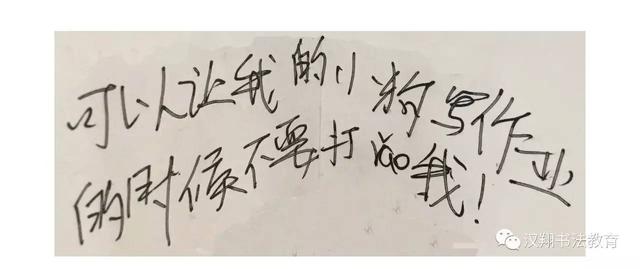 可以让我的小狗写作业
的时候不要打我！
汉翔书法教育